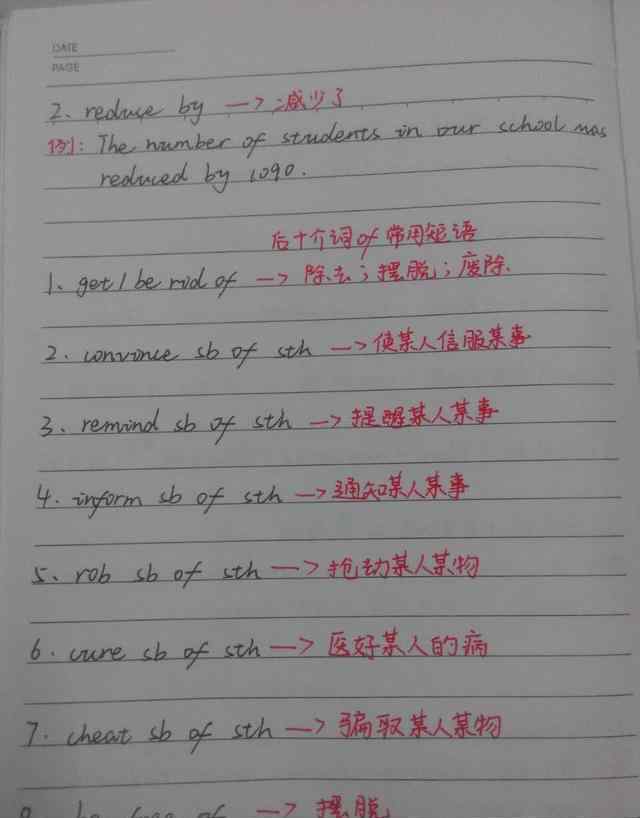 DATE
PAGE
2. reduce by —> 减少了
例: The number of students in our school was
reduced by 1090.
后十介词of 常用短语
1. get / be rid of —> 除去；摆脱；废除.
2. convince sb of sth —> 使某人信服某事
3. remind sb of sth —> 提醒某人某事
4. inform sb of sth —> 通知某人某事
5. rob sb of sth —> 抢劫某人某物
6. cure sb of sth —> 医好某人的病
7. cheat sb of sth —> 骗取某人某物
be free of —> 摆脱